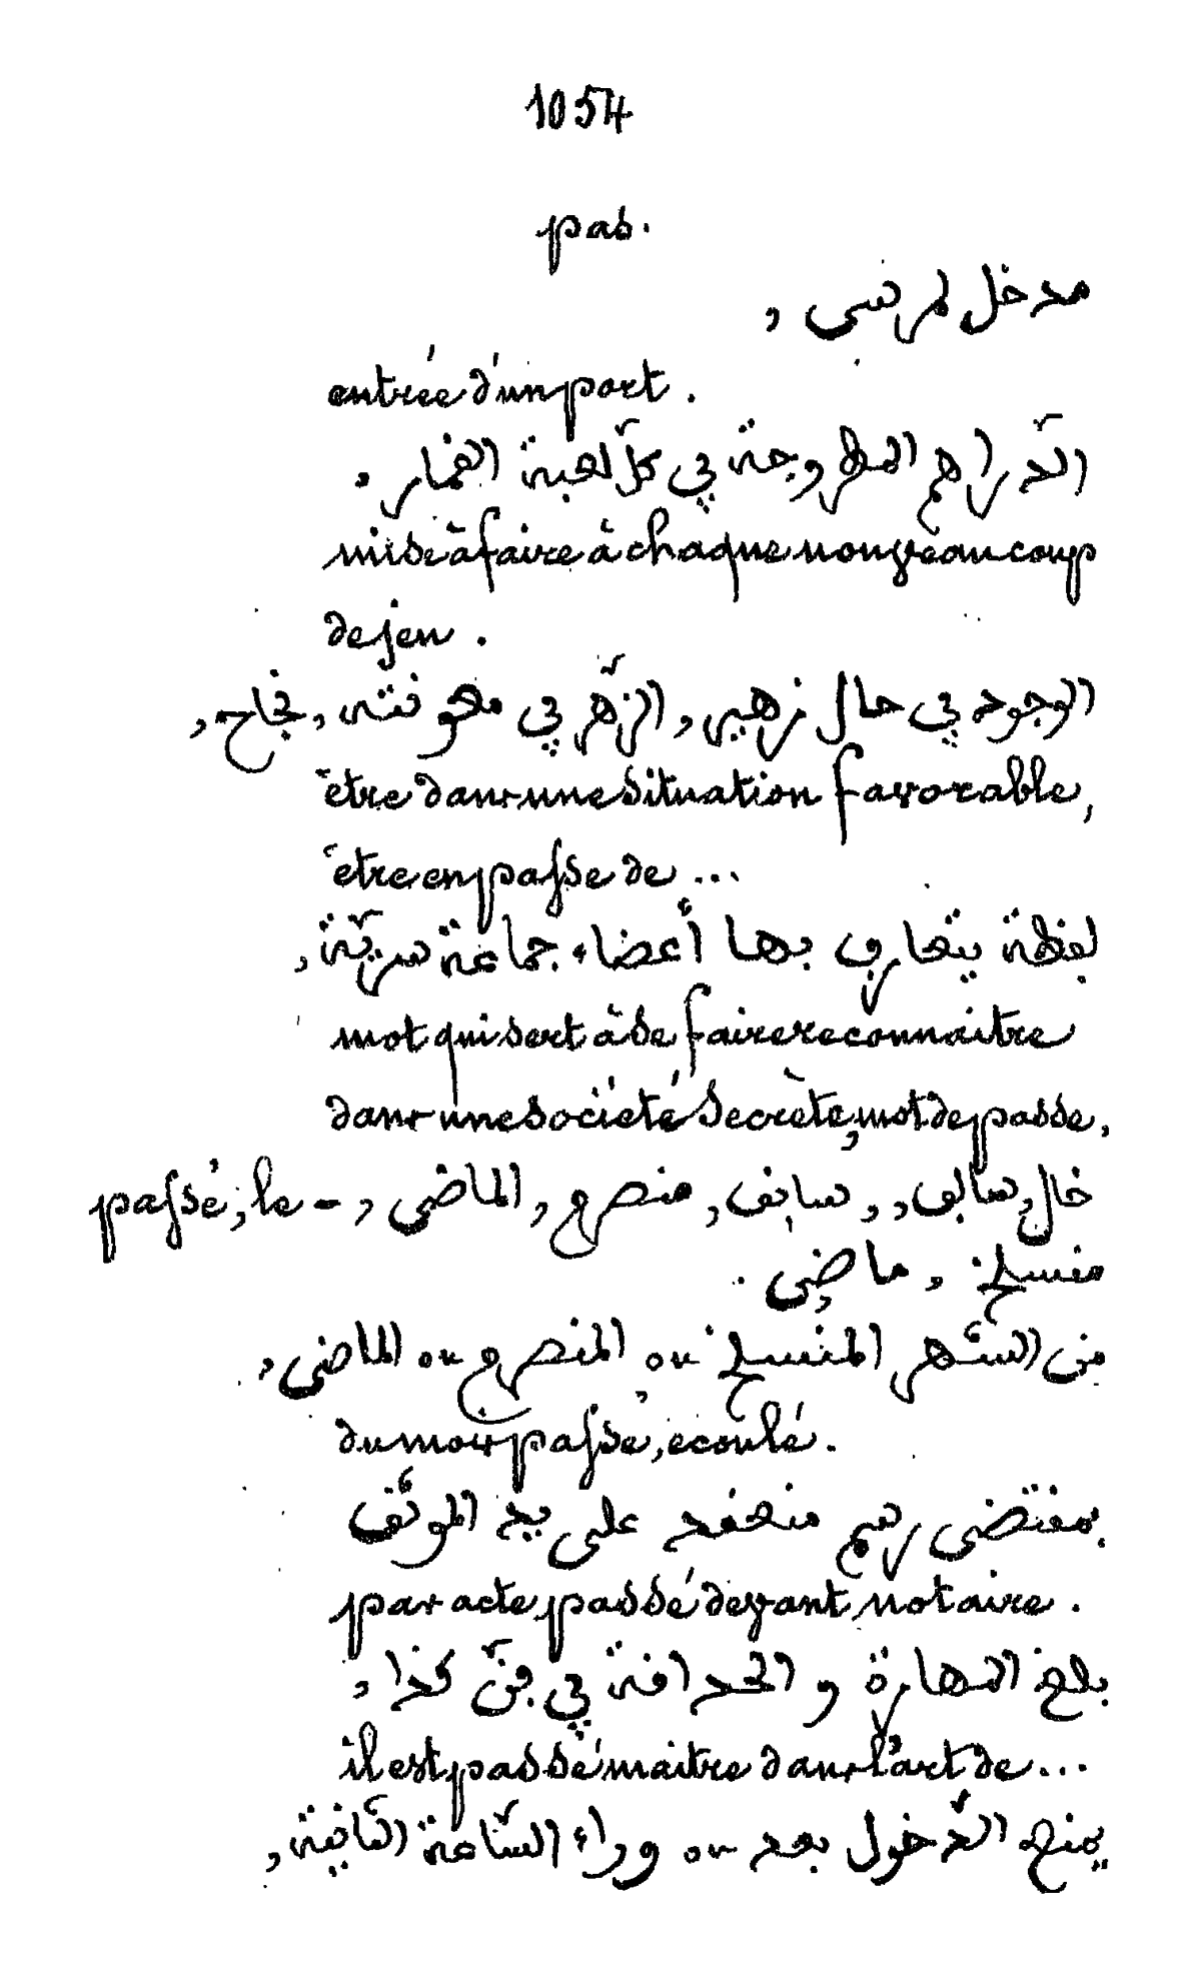 1054
pas.
مدخل لمرسى ,
entrée d'un port .
الدّراهم المطروحة في كلّ لعبة القمار ,
mise à faire à chaque nouveau coup
de jeu .
الوجود في حال زهير , الزّهر في معوفته , نجاح ,
être dans une situation favorable,
être en passe de ...
لفظة يتعارف بها أعضاء جماعة سرّيّة ,
mot qui sert à se faire reconnaitre
dans une société secrète, mot de passe,
passé, le – , خال , سالف , , سابق , منصرم , الماضي
منسلخ , ماضٍى .
من الشّهر المنسلخ ou المنصرم ou الماضى ,
du mois passé, écoulé .
بمقتضى رسم منعقد على يد الموثّق
par acte passé devant notaire .
بلغ المهارة و الحداقة في فنّ كذا ,
il est passé maitre dans l'art de ...
يمنع الدّخول بعد ou وراء السّاعة الثّانية ,